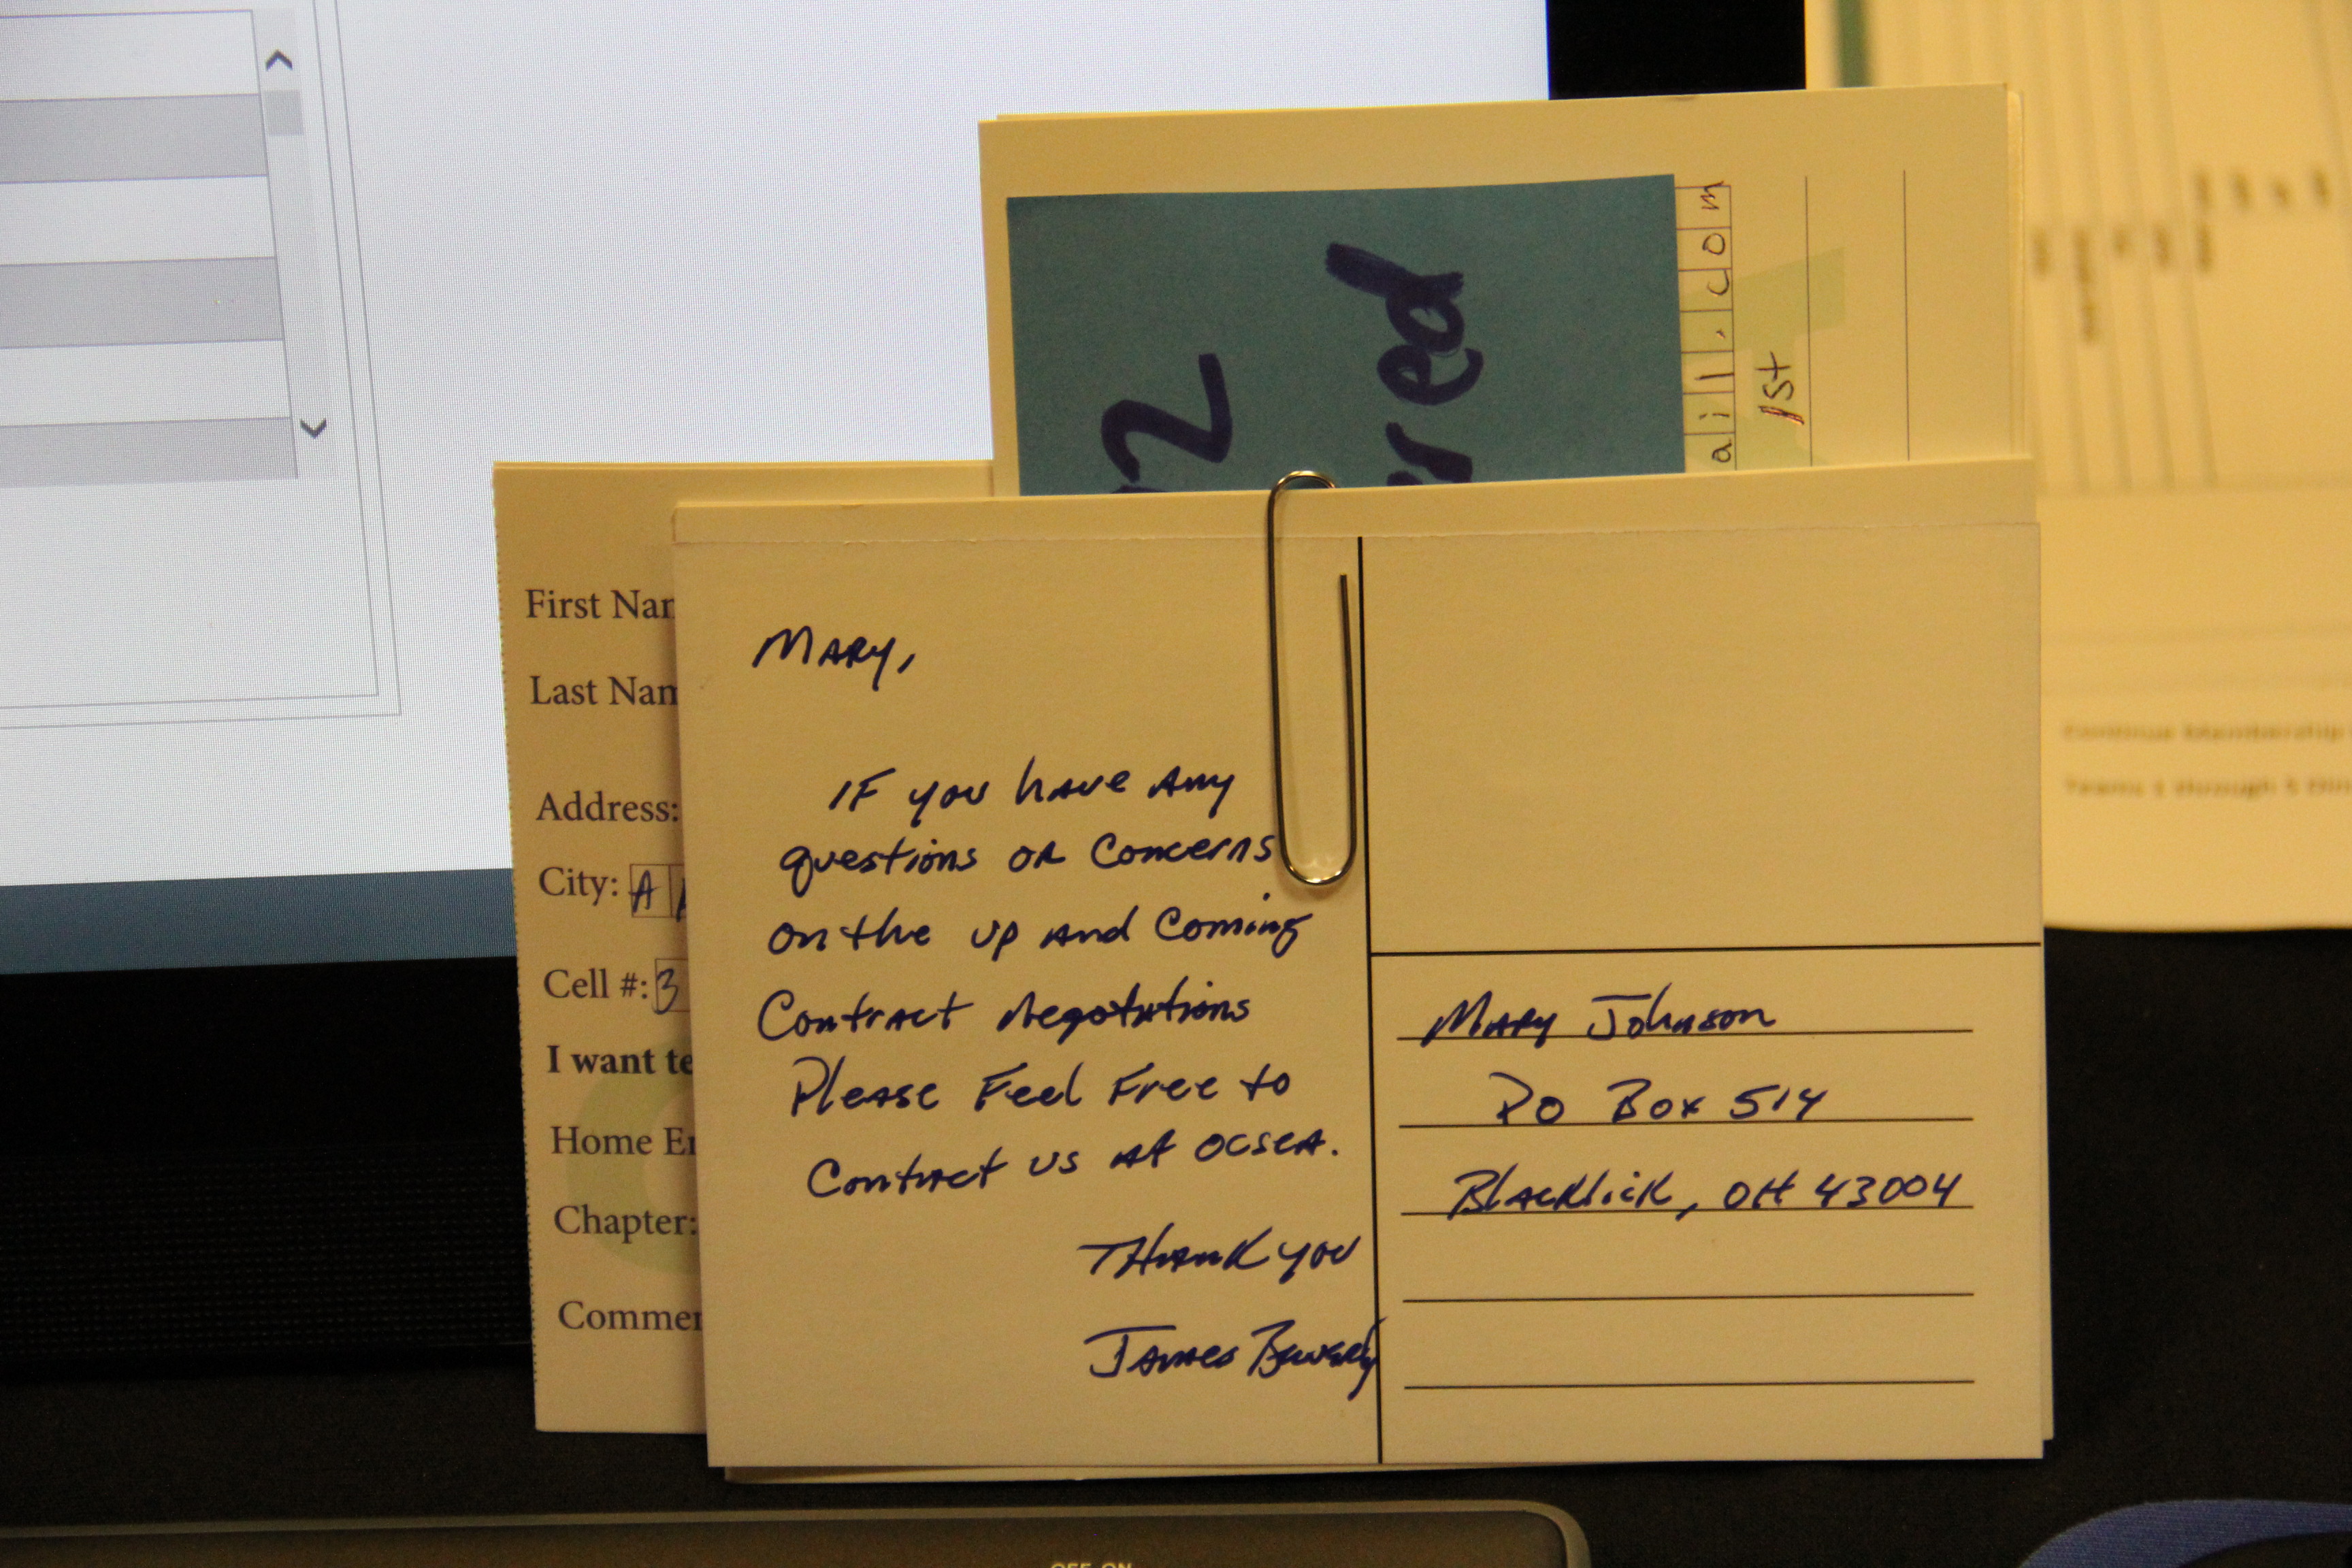 ail.com
1st
First Nam
Last Nam
Address:
City: A
Cell #: 3
I want te
Home E
Chapter:
Commen
Mary,
IF you have Any
questions or Concerns
on the up and Coming
Contract Negotations
Please Feel Free to
Contract us at OCSEA.
Thank you
James Beverly
Mary Johnson
PO Box 514
Blacklick, OH 43004
Continue Membership
Teams 1 through 5
OFF ON